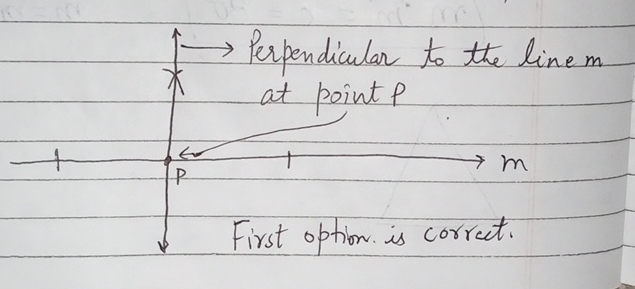 Perpendicular to the line m
at point P
m
P
First option. is correct.